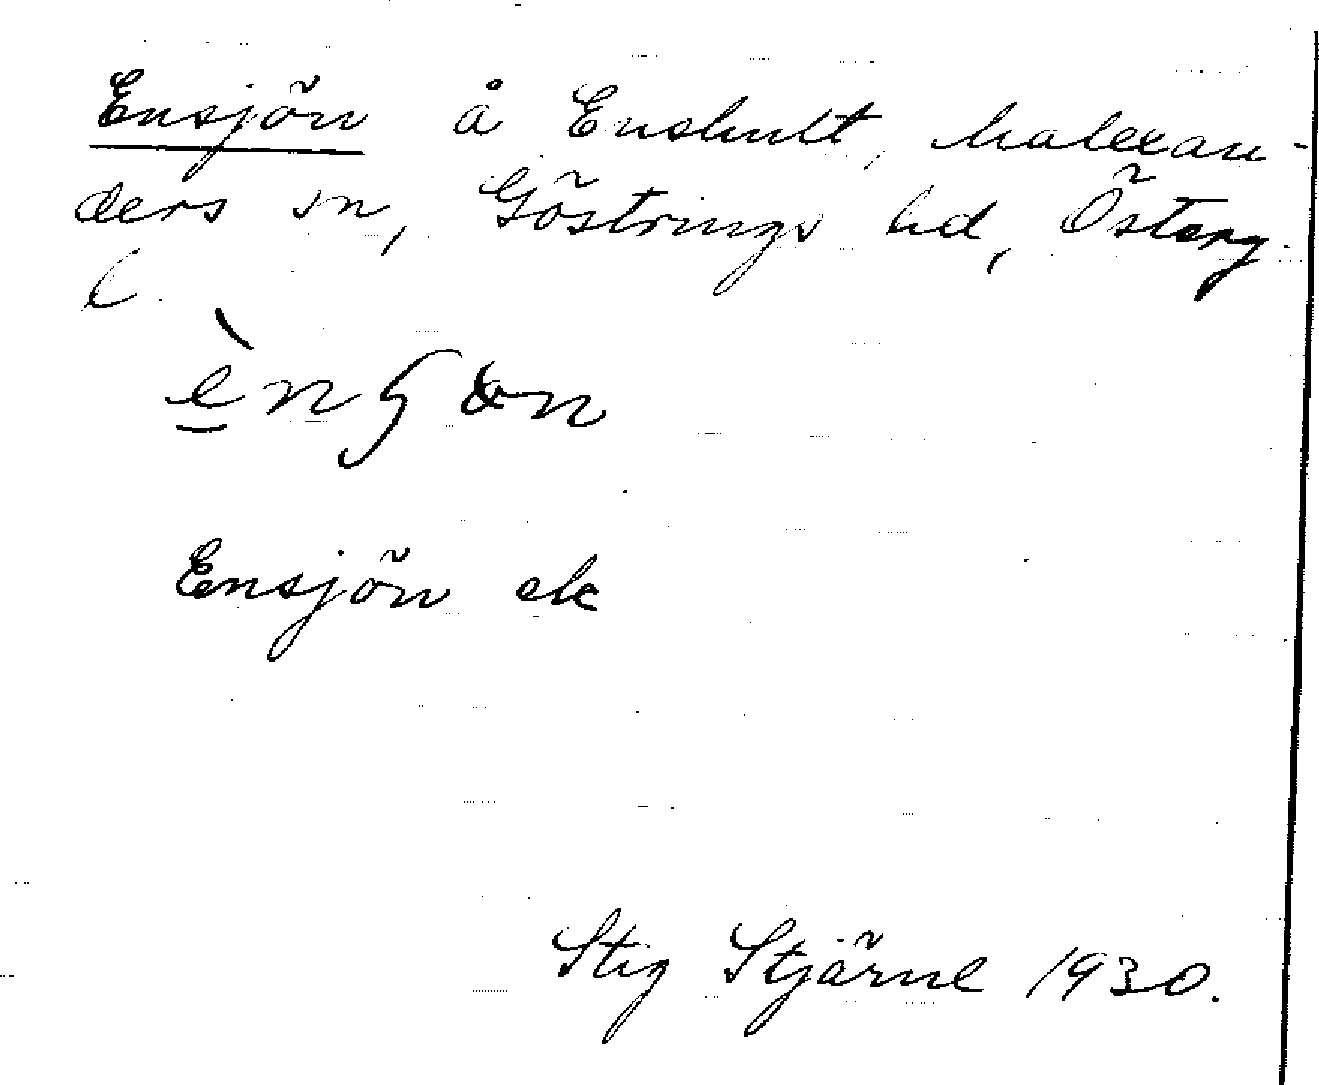 Ensjön å Enshult, Malexan-
ders sn, Göstrings hd, Österg
l.
ènʃɷn
Ensjön ek
Stig Stjärne 1930.